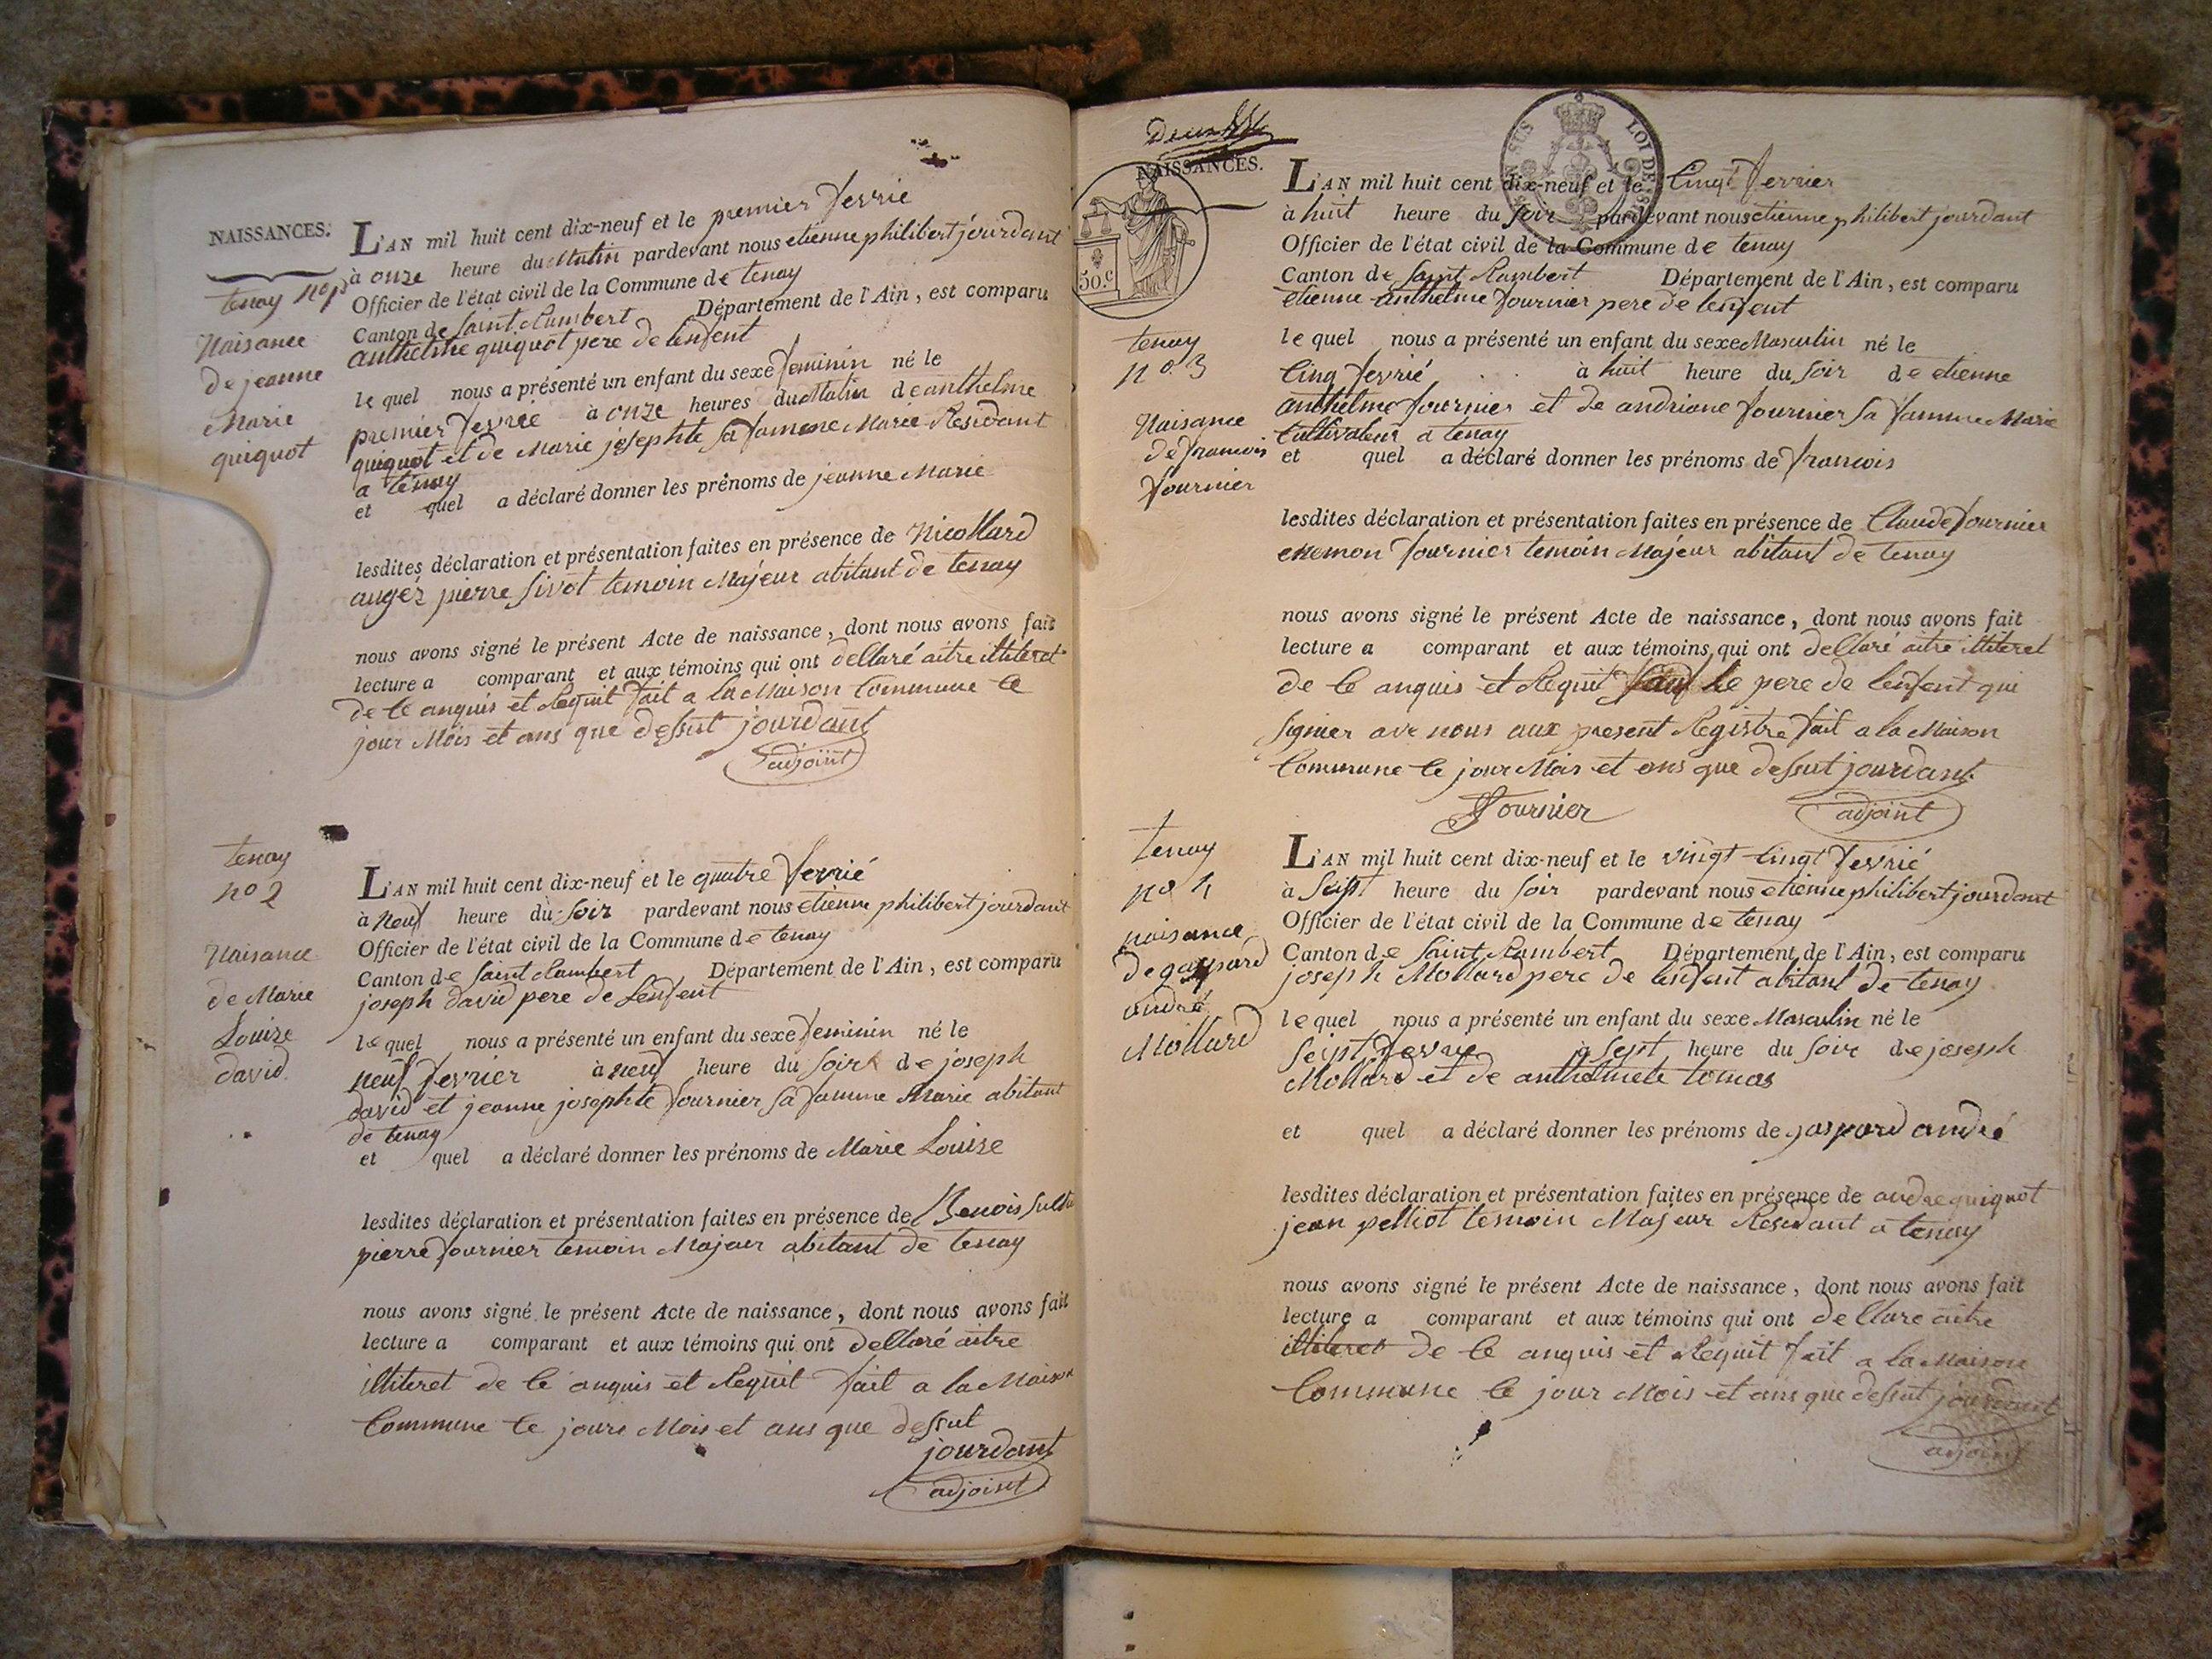 NAISSANCES.
tenay no 1
Naisance
de jeanne
Marie
quiquot
L'AN mil huit cent dix-neuf et le premier fevrie
à onze heure du Matin pardevant nous etienne philibert jourdant
Officier de l'état civil de la Commune de tenay
Canton de Saint Rambert Département de l'Ain, est comparu
anthelme quiquot pere de lenfent
le quel nous a présenté un enfant du sexe feminin né le
premier fevrié à onze heures du Matin de anthelme
quiquot et de Marie josephte sa famme Marié Residant
a tenay
et quel a déclaré donner les prénoms de jeanne Marie
lesdites déclaration et présentation faites en présence de Nicollard
augér pierre Sivot temoin Majeur abitant de tenay
nous avons signé le présent Acte de naissance, dont nous avons fait
lecture a comparant et aux témoins qui ont dellaré aitre illiteret
de ce anquis et Requit fait a la Maison Commune le
jour Mois et ans que dessut jourdant
adjoint
tenay
no 2
Naisance
de Marie
Louize
david
L'AN mil huit cent dix-neuf et le quatre fevrié
à neuf heure du soir pardevant nous etienne philibert jourdant
Officier de l'état civil de la Commune de tenay
Canton de Saint Rambert Département de l'Ain, est comparu
joseph david pere de Lenfent
le quel nous a présenté un enfant du sexe feminin né le
neuf fevrier à neuf heure du soir de joseph
david et jeanne josephte fournier sa famme Marie abitant
de tenay
et quel a déclaré donner les prénoms de Marie Louize
lesdites déclaration et présentation faites en présence de Benois
pierre fournier temoin Majeur abitant de tenay
nous avons signé le présent Acte de naissance, dont nous avons fait
lecture a comparant et aux témoins qui ont dellaré aitre
illiteret de ce anquis et Requit fait a la Maison
Commune le jour Mois et ans que dessut
jourdant
adjoint
NAISSANCES.
50.c
SUS LOI DE
tenay
no 3
Naisance
de francois
fournier
L'AN mil huit cent dix-neuf et le Cinqt fevrier
à huit heure du soir pardevant nous etienne philibert jourdant
Officier de l'état civil de la Commune de tenay
Canton de Saint Rambert Département de l'Ain, est comparu
etienne anthelme fournier pere de lenfent
le quel nous a présenté un enfant du sexe Masculin né le
Cinq fevrié à huit heure du soir de etienne
anthelme fournier et de andriane fournier sa famme Marie
Cultivateur a tenay
et quel a déclaré donner les prénoms de francois
lesdites déclaration et présentation faites en présence de Claude fournier
enemon fournier temoin Majeur abitant de tenay
nous avons signé le présent Acte de naissance, dont nous avons fait
lecture a comparant et aux témoins qui ont dellaré aitre illiteret
de ce anquis et Requit sauf le pere de lenfent qui
signier ave nous aux present Registre fait a la Maison
Commune le jour Mois et ans que dessut jourdant
fournier adjoint
tenay
no 4
naisance
de gaspard
andré
Mollard
L'AN mil huit cent dix-neuf et le vingt Cinqt fevrié
à Sept heure du soir pardevant nous etienne philibert jourdant
Officier de l'état civil de la Commune de tenay
Canton de Saint Rambert Département de l'Ain, est comparu
joseph Mollard pere de lenfent abitant de tenay
le quel nous a présenté un enfant du sexe Masculin né le
Seipt fevrie à sept heure du soir de joseph
Mollard et de anthelmete tomas
et quel a déclaré donner les prénoms de gaspard andré
lesdites déclaration et présentation faites en présence de andre quiquot
jean pelliot temoin Majeur Residant a tenay
nous avons signé le présent Acte de naissance, dont nous avons fait
lecture a comparant et aux témoins qui ont dellare aitre
illiteret de ce anquis et Requit fait a la Maison
Commune le jour Mois et ans que dessut jourdant
adjoint